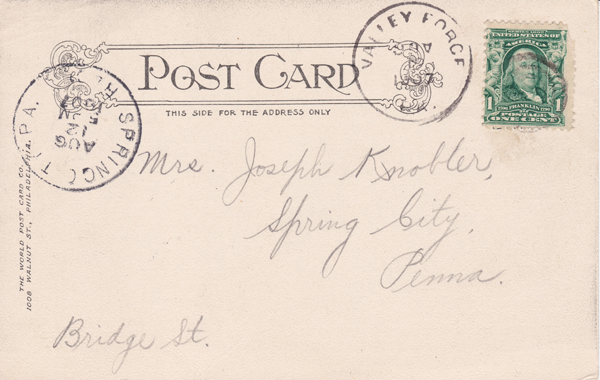 POST CARD
THIS SIDE FOR THE ADDRESS ONLY
VALLEY FORGE
PA.
UNITED STATES OF AMERICA
1 FRANKLIN 1
POSTAGE
ONE CENT
SPRING CITY, PA.
AUG
12
Mrs. Joseph Knobler,
Spring City,
Penna.
Bridge St.
THE WORLD POST CARD CO.
1008 WALNUT ST., PHILADELPHIA.